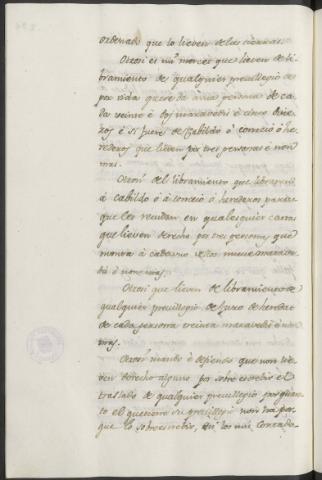 ordenado que lo lieven de las cienzas.
Otrosi es mi merced que lieven de li-
bramiento de qualquier previllegio de
por vida que sea de una persona de ca-
da veinte è dos maravedis è cinco dine-
ros è si fuere de Cabildo ò concejo ò he-
rederos que lieven por tres personas è non
mas.
Otrosi del libramiento que libraren
á cabildo ó á concejo ó herederos para
que les recudan en qualesquier cartas
que lieven derecho por tres personas, que
monta á cada uno nueve marave-
dis è non mas.
Otrosi que lieven de libramiento de
qualquier previllegio de juro de heredad
de cada persona treinta maravedis è non
mas.
Otrosi mando è defiendo que non lie-
ven derecho alguno por sobreescrebir el
traslado de qualquier previllegio por quan-
to el que tiene su previllegio non ha por-
que lo sobreescrebir, ni los mis Contado-